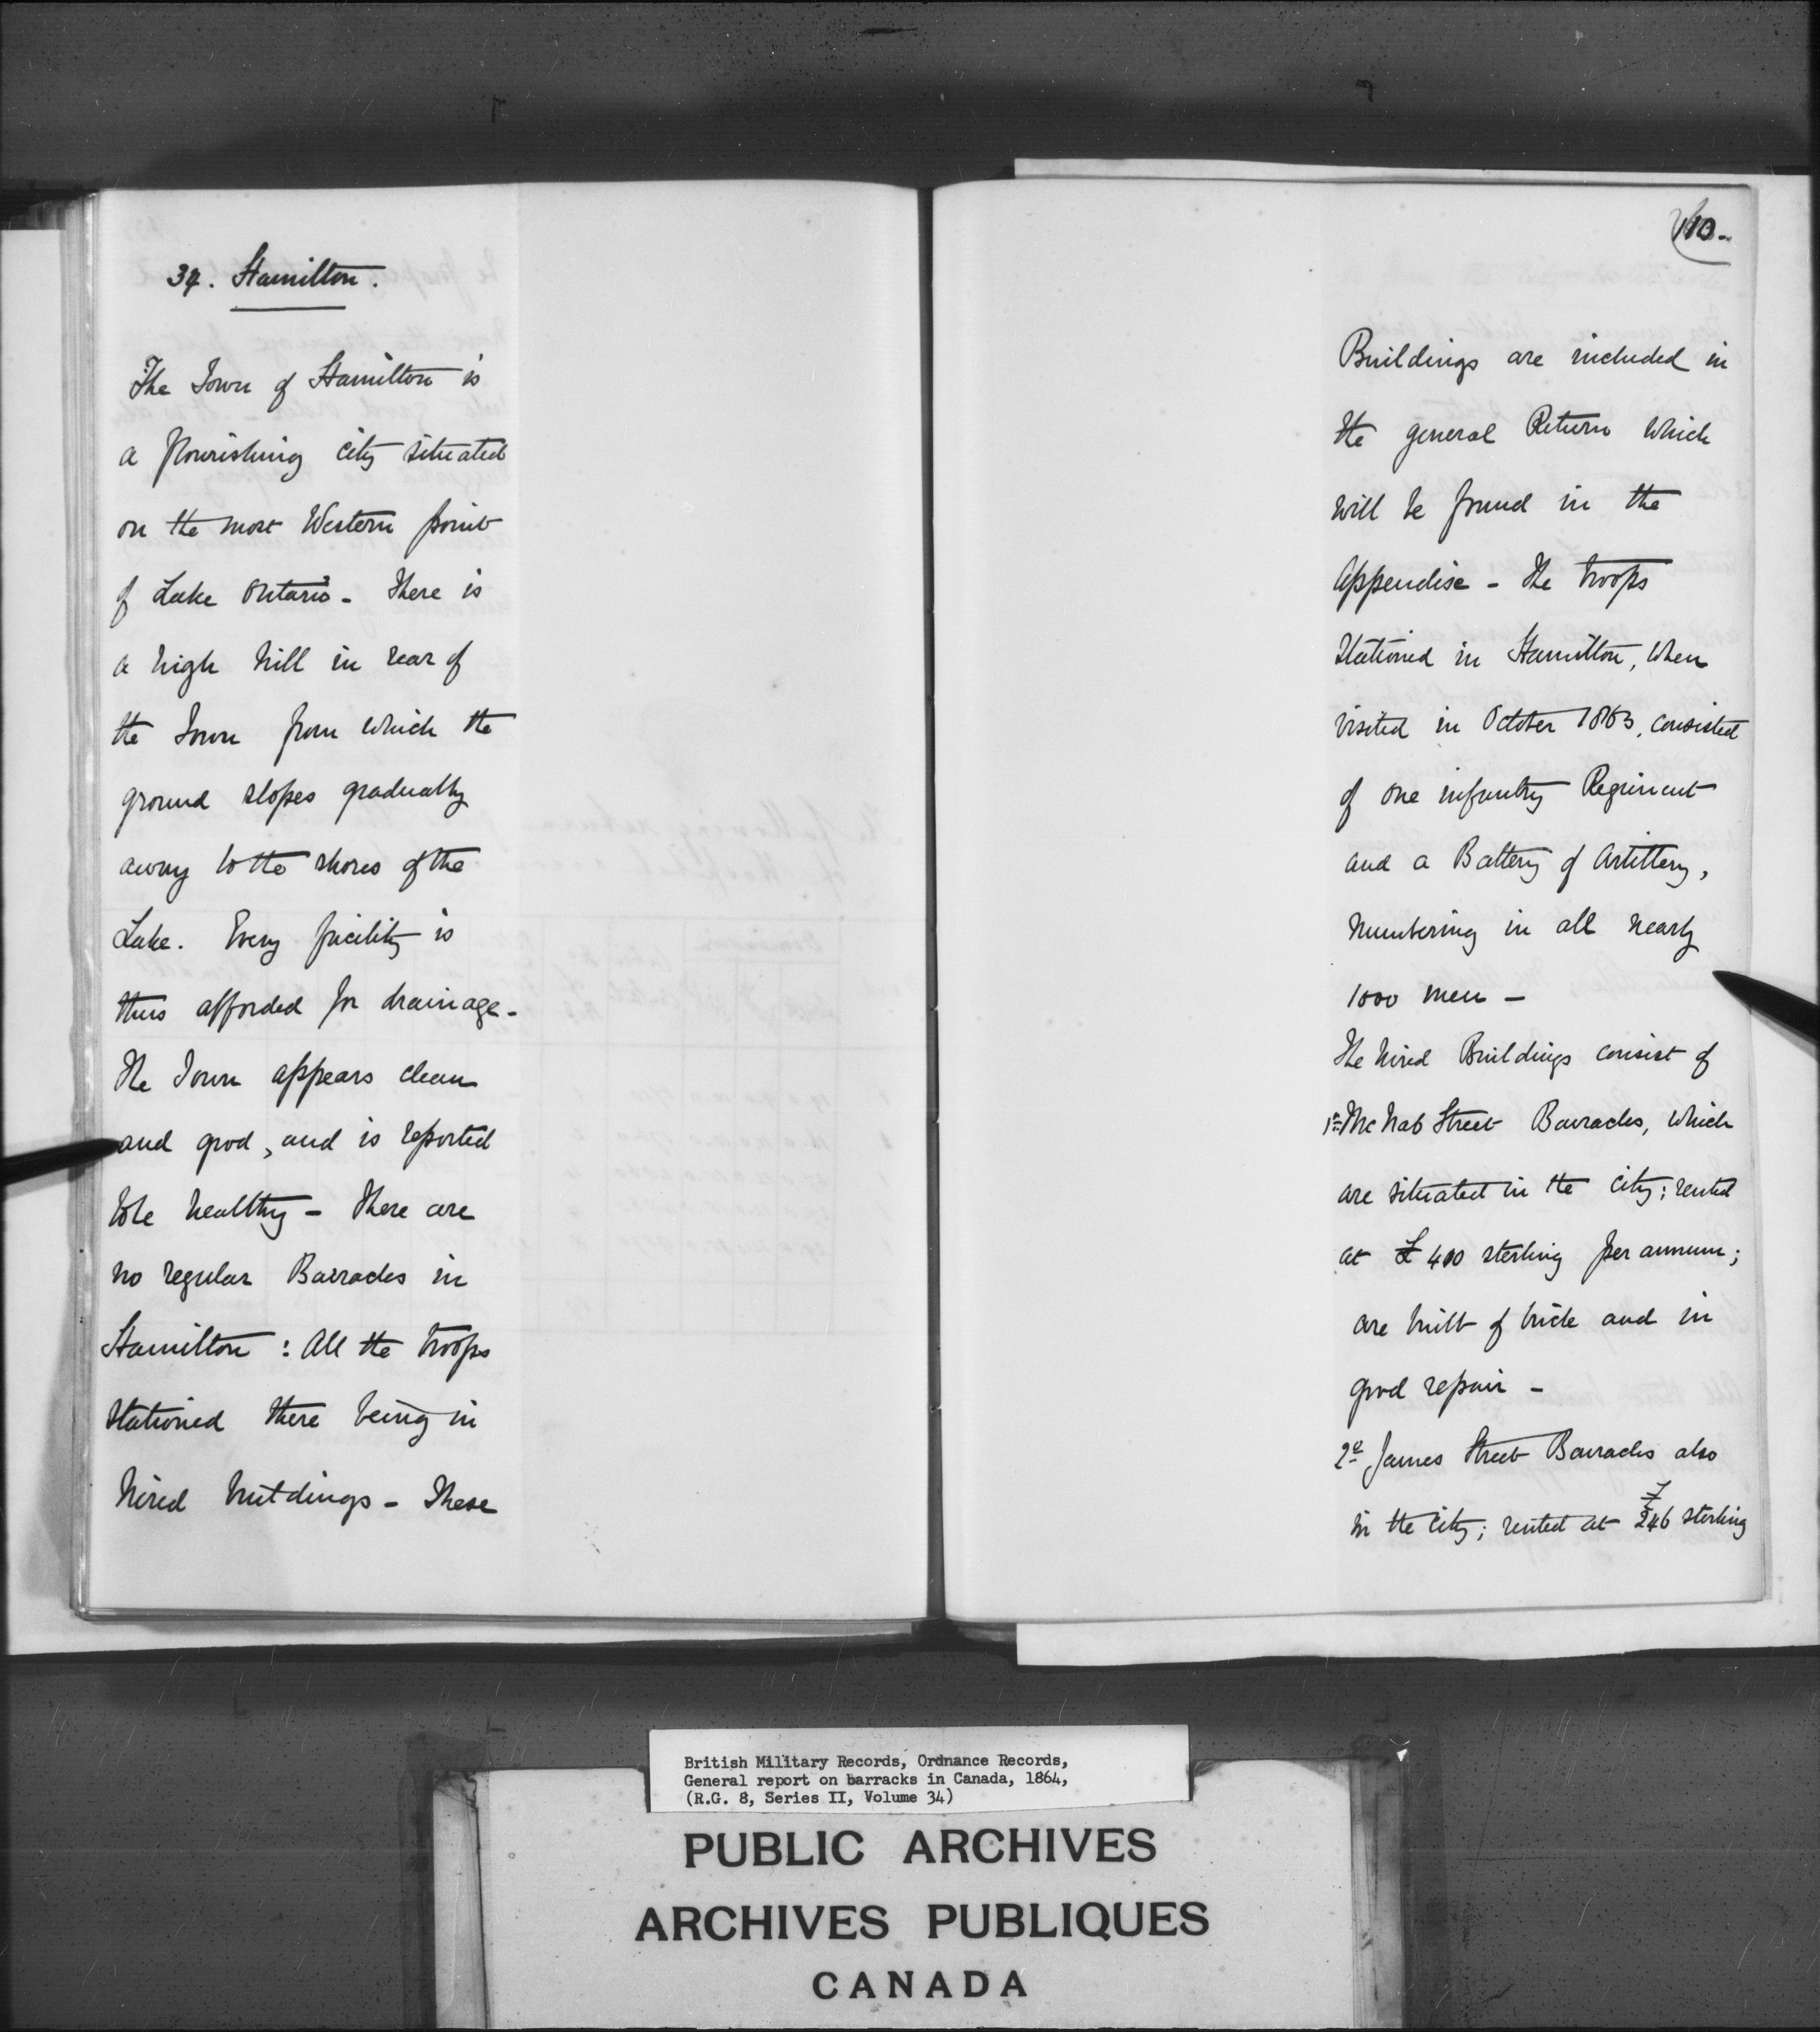 34. Hamilton.
The Town of Hamilton is
a flourishing city situated
on the most Western point
of Lake Ontario - There is
a high hill in rear of
the Town from which the
ground slopes gradually
away to the shores of the
Lake. Every facility is
thus afforded for drainage -
The Town appears clean
and good, and is reported
to be healthy - There are
no regular Barracks in
Hamilton : All the troops
stationed there being in
hired buildings - These
110.
Buildings are included in
the general Return which
will be found in the
Appendix - The troops
stationed in Hamilton, when
visited in October 1863, consisted
of one infantry Regiment
and a Battery of Artillery,
numbering in all nearly
1000 men -
The hired Buildings consist of
1st McNab Street Barracks, which
are situated in the city; rented
at £400 sterling per annum;
are built of brick and in
good repair -
2d James Street Barracks also
in the city; rented at £246 sterling
British Military Records, Ordnance Records,
General report on barracks in Canada, 1864,
(R.G. 8, Series II, Volume 34)
PUBLIC ARCHIVES
ARCHIVES PUBLIQUES
CANADA